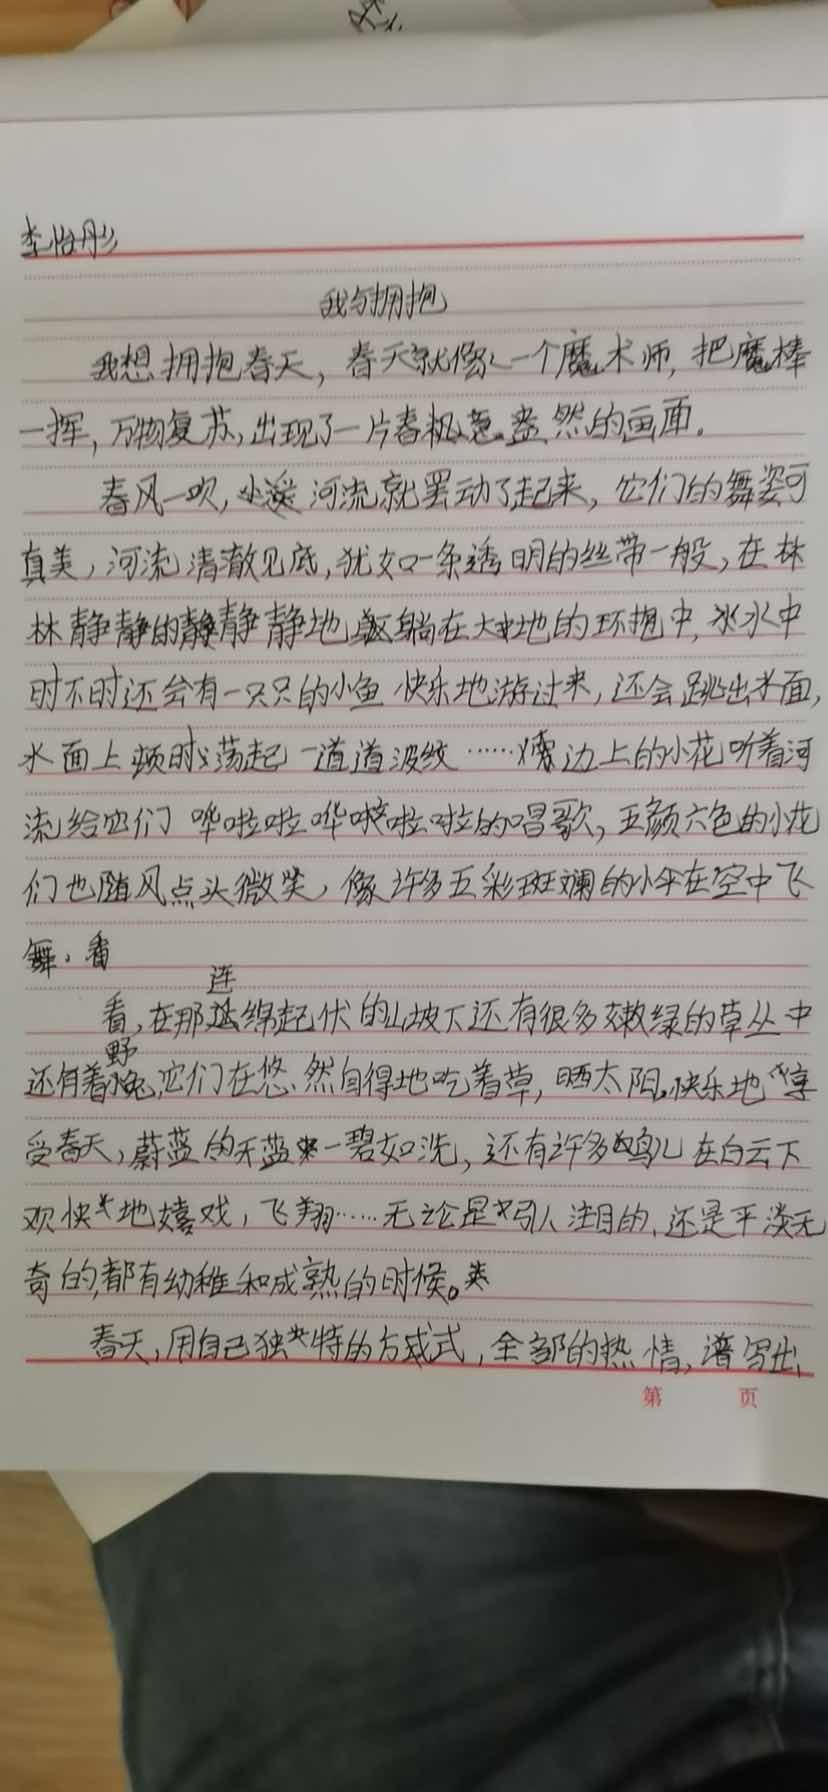 李怡彤
我与拥抱
我想拥抱春天，春天就像一个魔术师，把魔棒
一挥，万物复苏，出现了一片春机盎然的画面。
春风一吹，河流就罢动了起来，它们的舞姿可
真美，河流清澈见底，犹如一条透明的丝带一般，在林
林静静的静静静地躺在大地的环抱中，水中
时不时还会有一只只的小鱼快乐地游过来，还会跳出水面，
水面上顿时荡起一道道波纹……边上的小花听着河
流给它们哗啦啦哗啦啦啦的唱歌，五颜六色的小花
们也随风点头微笑，像许多五彩斑斓的小伞在空中飞
舞。看
看，在那连绵起伏的山坡下还有很多嫩绿的草丛中
还有着野兔，它们在悠然自得地吃着草，晒太阳。快乐地享
受春天，蔚蓝的天蓝一碧如洗，还有许多鸟儿在白云下
欢快地嬉戏，飞翔……无论是引人注目的，还是平淡无
奇的，都有幼稚和成熟的时候。
春天，用自己独特的方式，全部的热情，谱写出
第 页